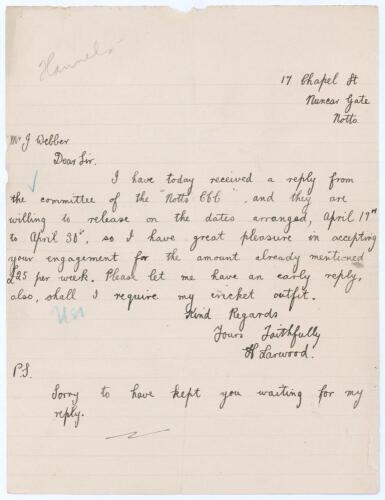 Flannels
17 Chapel St
Nuncar Gate
Notts.
Mr J Webber
Dear Sir.
I have today received a reply from
the committee of the "Notts CCC", and they are
willing to release on the dates arranged, April 17th
to April 30th, so I have great pleasure in accepting
your engagement for the amount already mentioned
£25 per week. Please let me have an early reply,
also, shall I require my cricket outfit.
Yes
Kind Regards
Yours Faithfully
H Larwood.
P.S.
Sorry to have kept you waiting for my
reply.